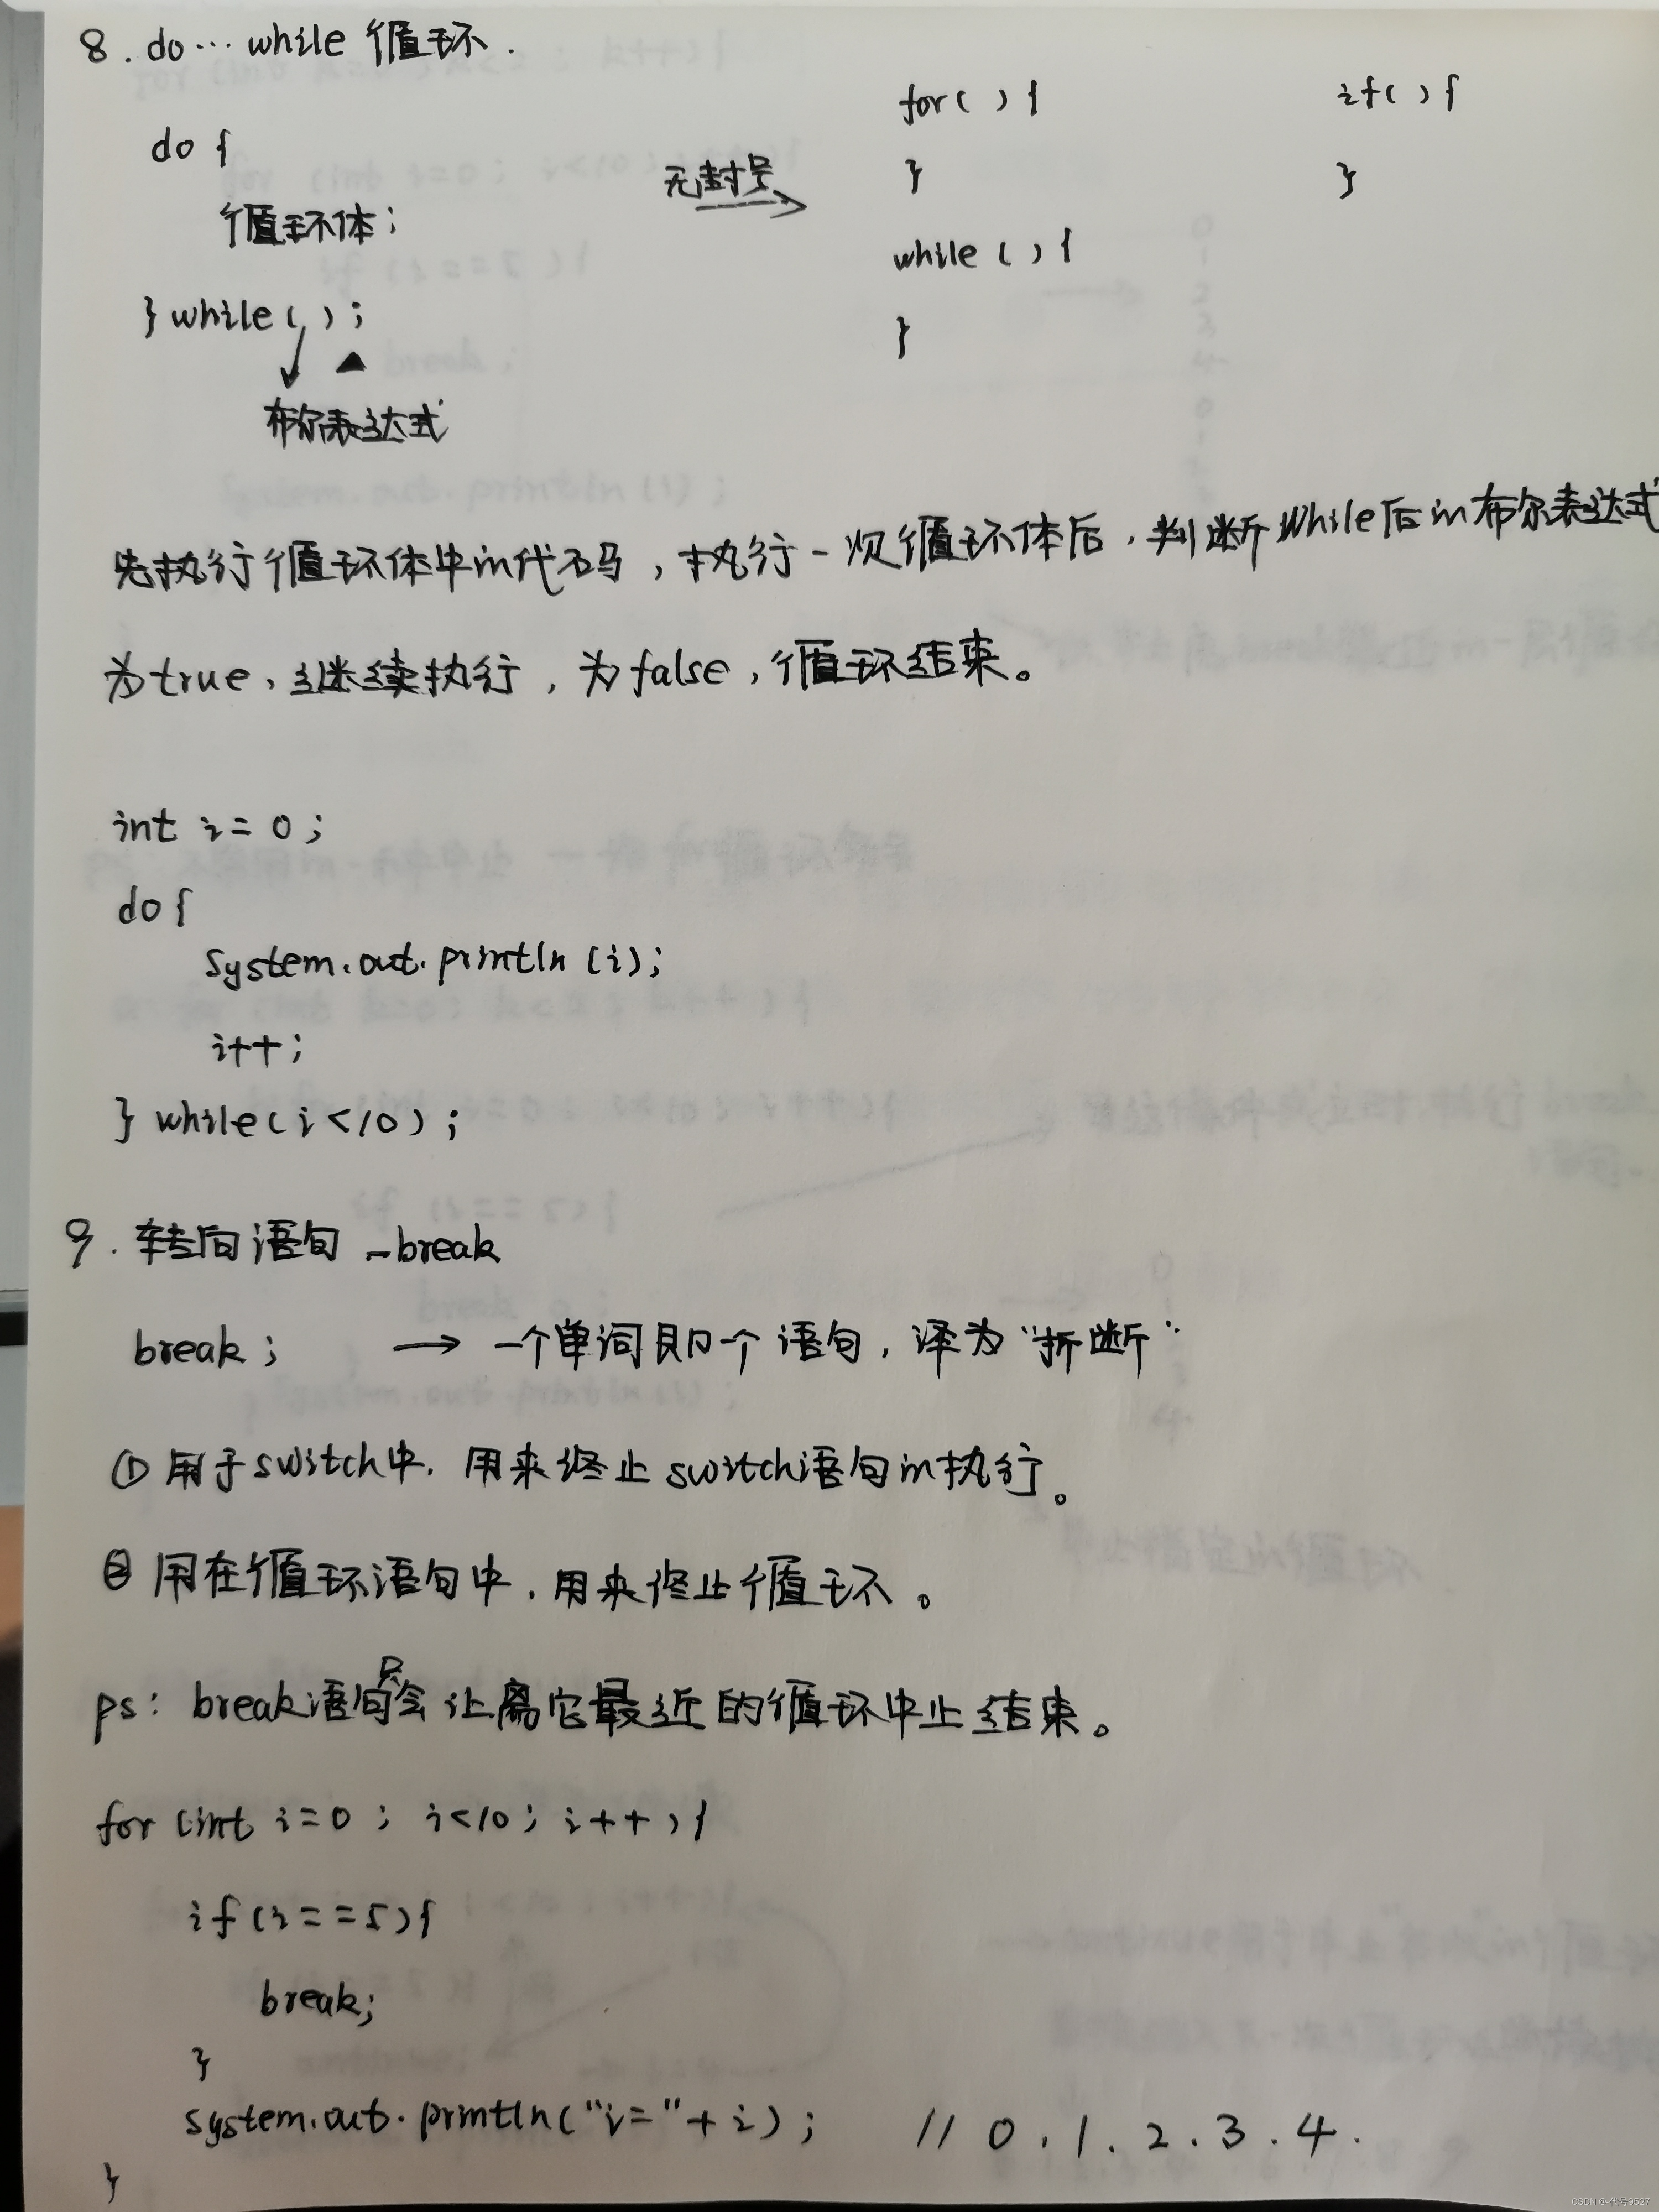 8. do… while 循环.
do {
循环体;
} while( );
布尔表达式
无封号
for( ) {
}
while ( ) {
}
if( ) {
}
先执行循环体中in代码，执行一次循环体后，判断while后in布尔表达式
为true，继续执行，为false，循环结束。
int i = 0 ;
do {
system.out.println (i);
i++;
} while(i<10);
9. 转向语句 -break
break ; → 一个单词即一个语句，译为"折断"
① 用于switch中，用来终止switch语句in执行。
② 用在循环语句中，用来终止循环。
ps: break语句只会让离它最近的循环中止结束。
for (int i=0 ; i<10 ; i++ ) {
if (i==5) {
break;
}
system.out.println("i="+i); // 0.1.2.3.4.
}
CSDN @-代号9527